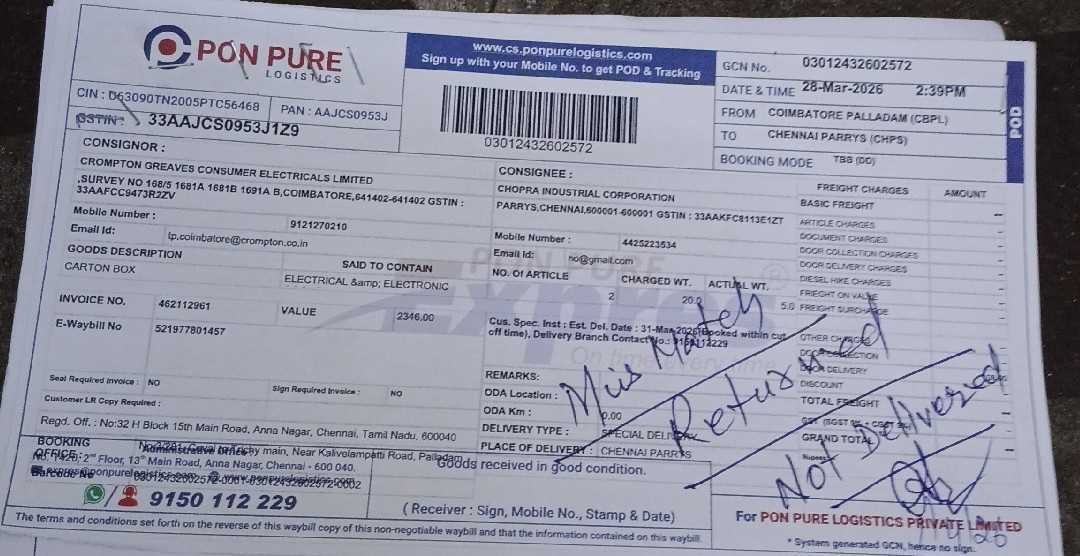 PON PURE
LOGISTICS
CIN : D63090TN2005PTC56468
PAN : AAJCS0953J
GSTIN : 33AAJCS0953J1Z9
www.cs.ponpurelogistics.com
Sign up with your Mobile No. to get POD & Tracking
03012432602572
GCN No. 03012432602572
DATE & TIME 28-Mar-2026 2:39PM
FROM COIMBATORE PALLADAM (CBPL)
TO CHENNAI PARRYS (CHPS)
BOOKING MODE TBB (DD)
POD
CONSIGNOR :
CROMPTON GREAVES CONSUMER ELECTRICALS LIMITED
,SURVEY NO 168/5 1681A 1681B 1691A B,COIMBATORE,641402-641402 GSTIN :
33AAFCC9473R2ZV
Mobile Number : 9121270210
Email Id: tp.coimbatore@crompton.co.in
GOODS DESCRIPTION
SAID TO CONTAIN
CARTON BOX
ELECTRICAL &amp; ELECTRONIC
INVOICE NO. 462112961
VALUE 2346.00
E-Waybill No 521977801457
Seal Required Invoice : NO
Sign Required Invoice : NO
Customer LR Copy Required :
CONSIGNEE :
CHOPRA INDUSTRIAL CORPORATION
PARRYS,CHENNAI,600001-600001 GSTIN : 33AAKFC8113E1ZT
Mobile Number : 4425223534
Email Id: no@gmail.com
NO. Of ARTICLE CHARGED WT. ACTUAL WT.
2 20.0 5.0
PON PURE
Express
On time
Cus. Spec. Inst : Est. Del. Date : 31-Mar-2026(Booked within cut
off time), Delivery Branch Contact No.: 9150112229
REMARKS:
ODA Location :
ODA Km : 0.00
DELIVERY TYPE : SPECIAL DELIVERY
PLACE OF DELIVERY : CHENNAI PARRYS
FREIGHT CHARGES AMOUNT
BASIC FREIGHT
ARTICLE CHARGES
DOCUMENT CHARGES
DOOR COLLECTION CHARGES
DOOR DELIVERY CHARGES
DIESEL HIKE CHARGES
FRIEGHT ON VALUE
FREIGHT SURCHARGE
OTHER CHARGES
DOOR COLLECTION
DOOR DELIVERY
DISCOUNT
TOTAL FREIGHT
GRAND TOTAL
Rupees
Miis Match
Returned
NOT Delivered
Regd. Off. : No:32 H Block 15th Main Road, Anna Nagar, Chennai, Tamil Nadu, 600040
BOOKING
OFFICE :
Administrative Office
main, Near Kalivelampatti Road, Palladam
2nd Floor, 13th Main Road, Anna Nagar, Chennai - 600 040.
Barcode No
9150 112 229
Goods received in good condition.
( Receiver : Sign, Mobile No., Stamp & Date)
For PON PURE LOGISTICS PRIVATE LIMITED
* System generated GCN, hence no sign.
The terms and conditions set forth on the reverse of this waybill copy of this non-negotiable waybill and that the information contained on this waybill.